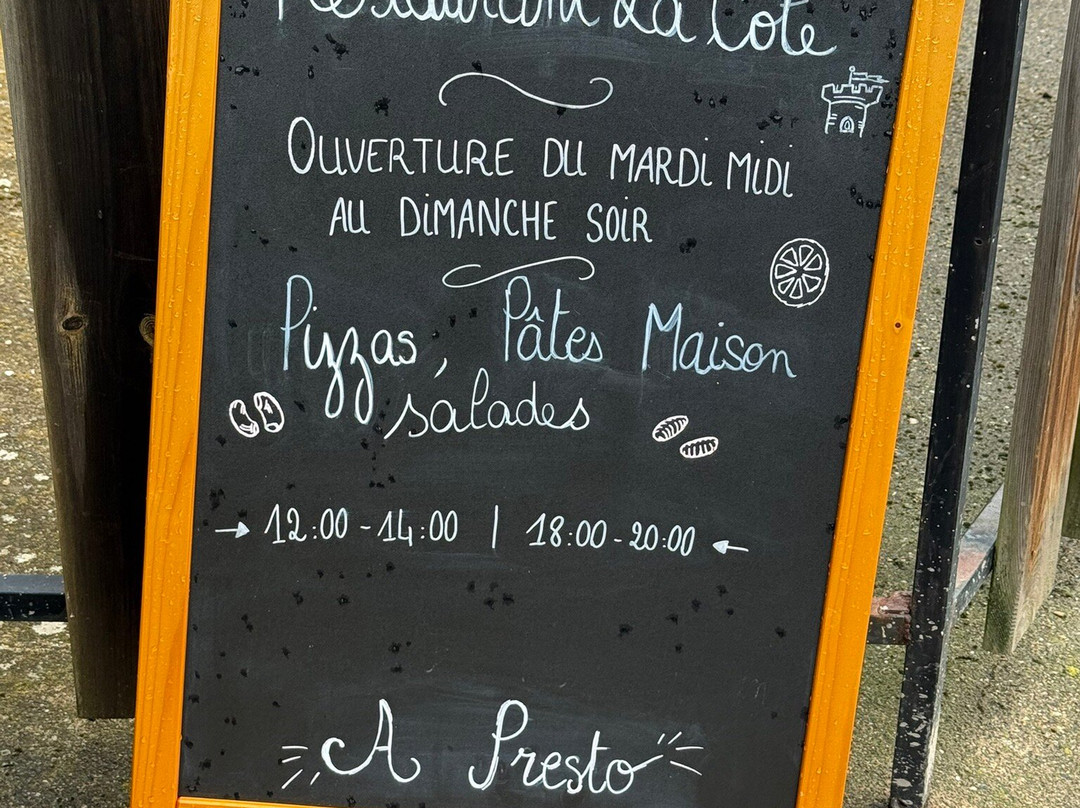 Restaurant La Côte
OUVERTURE DU MARDI MIDI
AU DIMANCHE SOIR
Pizzas, Pâtes Maison
salades
→ 12:00 - 14:00 | 18:00 - 20:00 ←
A Presto